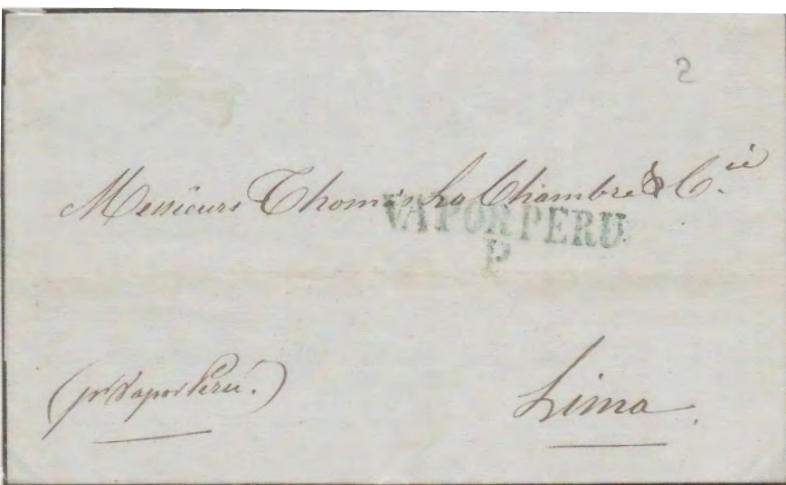 2
Messieurs Thomas La Chambre & Cie
VAPOR PERU
P
(pr Vapor Perú.)
Lima.